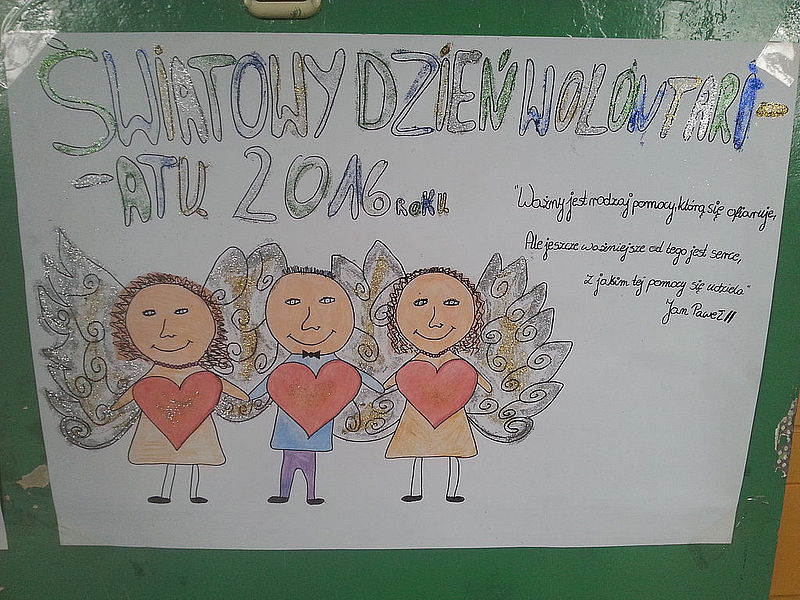 ŚWIATOWY DZIEŃ WOLONTARI-
-ATU 2016 ROKU
"Ważny jest rodzaj pomocy, którą się ofiaruje,
Ale jeszcze ważniejsze od tego jest serce,
Z jakim tej pomocy się udziela"
Jan Paweł II